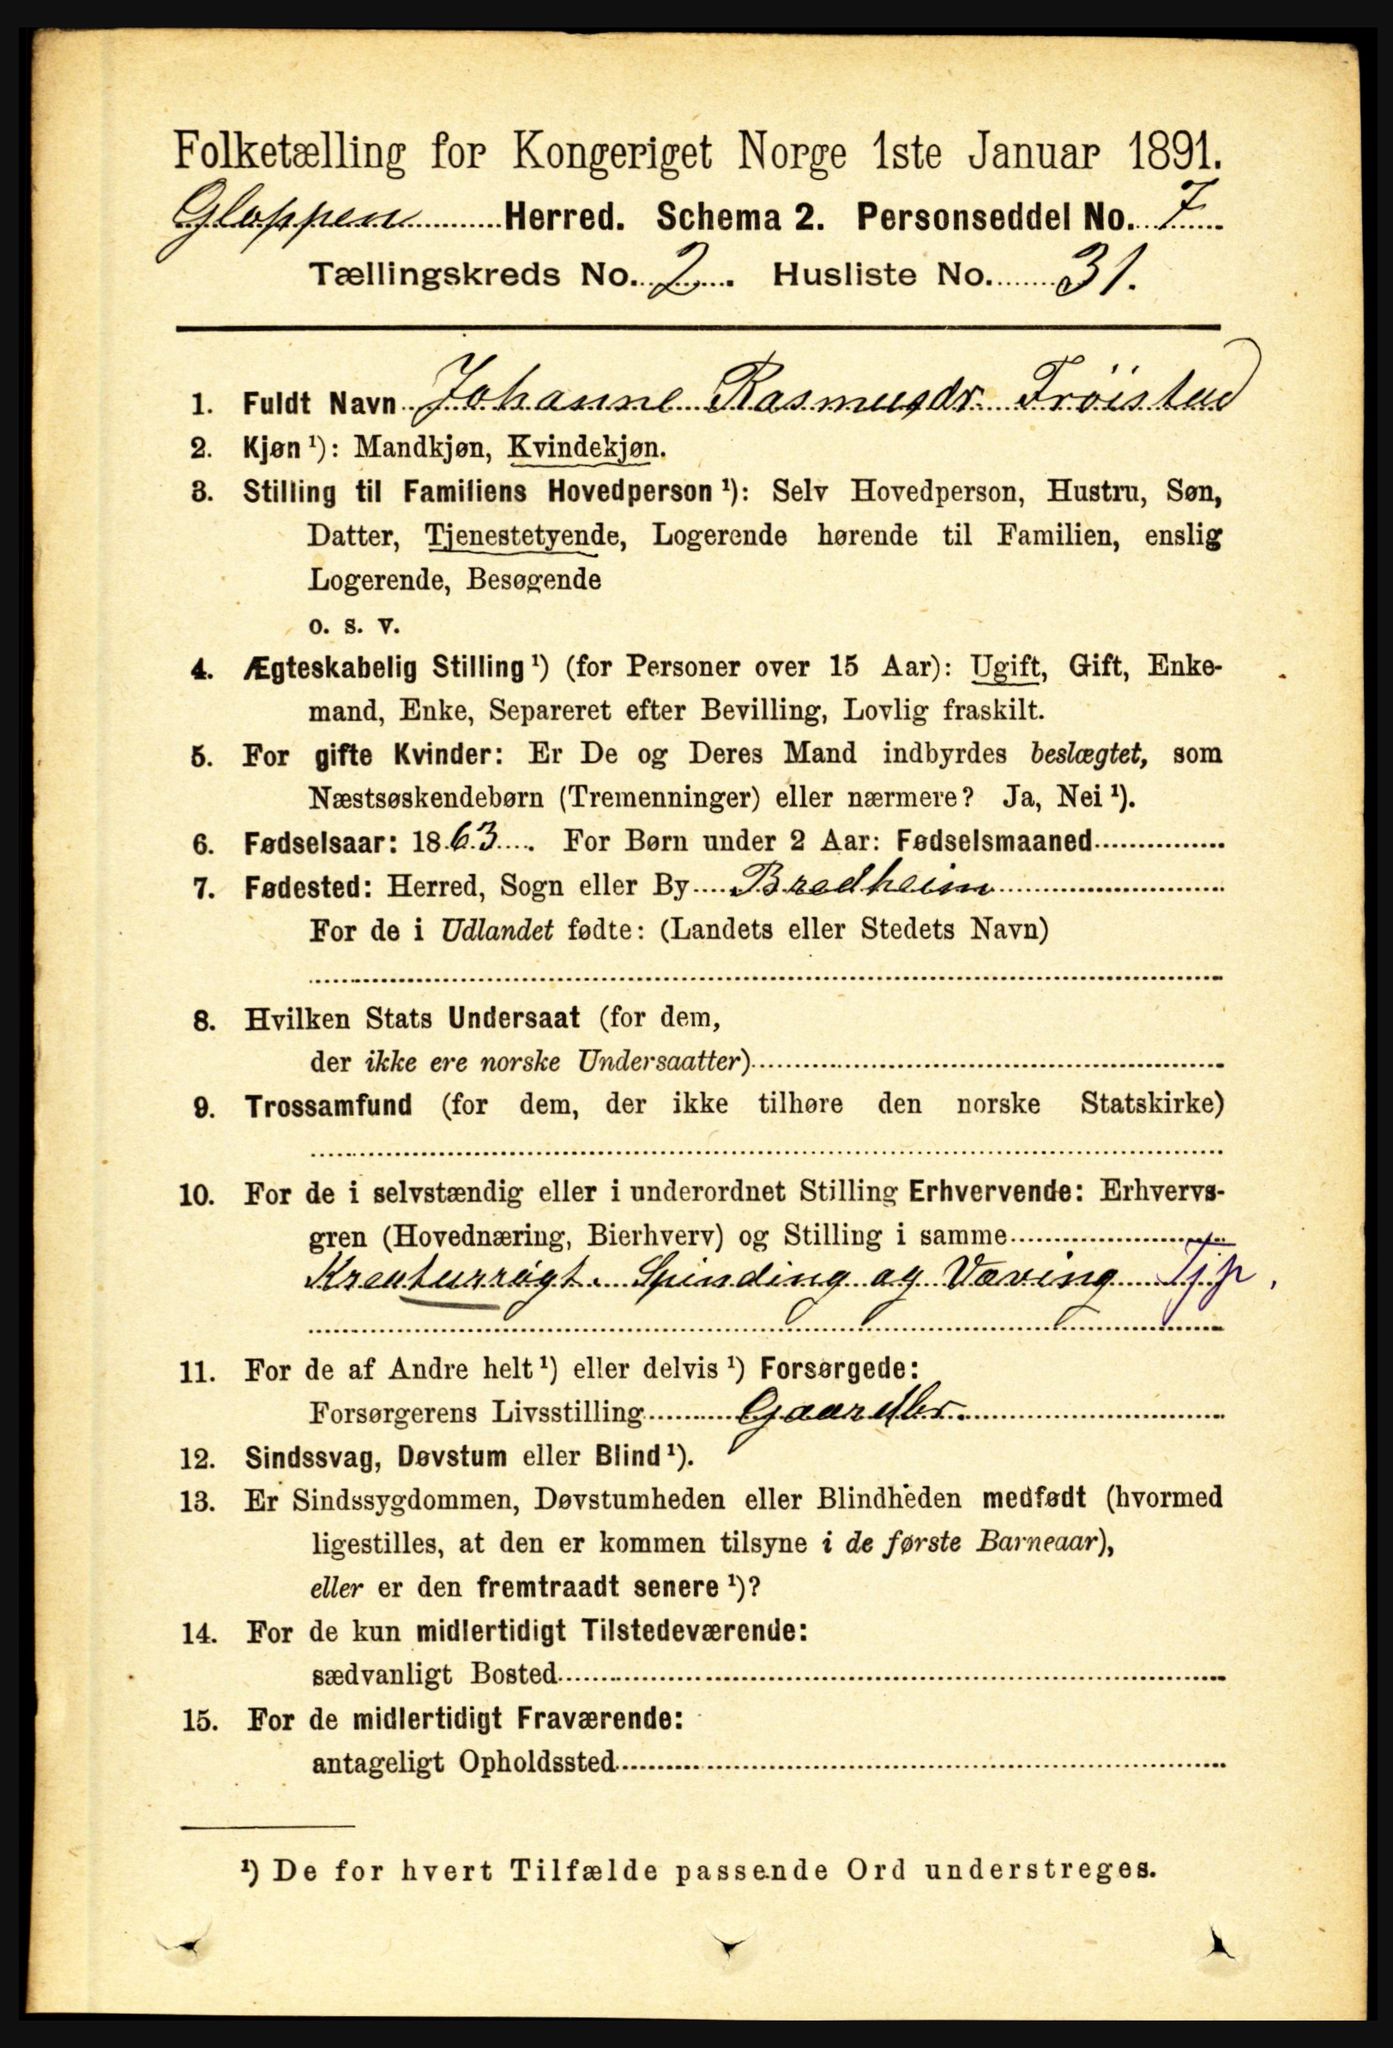 Folketælling for Kongeriget Norge 1ste Januar 1891.
Gloppen Herred. Schema 2. Personseddel No. 7
Tællingskreds No. 2. Husliste No. 31.
1. Fuldt Navn Johanne Rasmusdr. Tröistad
2. Kjøn ¹): Mandkjøn, Kvindekjøn.
3. Stilling til Familiens Hovedperson ¹): Selv Hovedperson, Hustru, Søn,
Datter, Tjenestetyende, Logerende hørende til Familien, enslig
Logerende, Besøgende
o. s. v.
4. Ægteskabelig Stilling ¹) (for Personer over 15 Aar): Ugift, Gift, Enke-
mand, Enke, Separeret efter Bevilling, Lovlig fraskilt.
5. For gifte Kvinder: Er De og Deres Mand indbyrdes beslægtet, som
Næstsøskendebørn (Tremenninger) eller nærmere? Ja, Nei ¹).
6. Fødselsaar: 1863. For Børn under 2 Aar: Fødselsmaaned
7. Fødested: Herred, Sogn eller By Bredheim
For de i Udlandet fødte: (Landets eller Stedets Navn)
8. Hvilken Stats Undersaat (for dem,
der ikke ere norske Undersaatter)
9. Trossamfund (for dem, der ikke tilhøre den norske Statskirke)
10. For de i selvstændig eller i underordnet Stilling Erhvervende: Erhvervs-
gren (Hovednæring, Bierhverv) og Stilling i samme
Kreaturrögt. Spinding og Væving Tjp.
11. For de af Andre helt ¹) eller delvis ¹) Forsørgede:
Forsørgerens Livsstilling Gaardbr.
12. Sindssvag, Døvstum eller Blind ¹).
13. Er Sindssygdommen, Døvstumheden eller Blindheden medfødt (hvormed
ligestilles, at den er kommen tilsyne i de første Barneaar),
eller er den fremtraadt senere ¹)?
14. For de kun midlertidigt Tilstedeværende:
sædvanligt Bosted
15. For de midlertidigt Fraværende:
antageligt Opholdssted
¹) De for hvert Tilfælde passende Ord understreges.